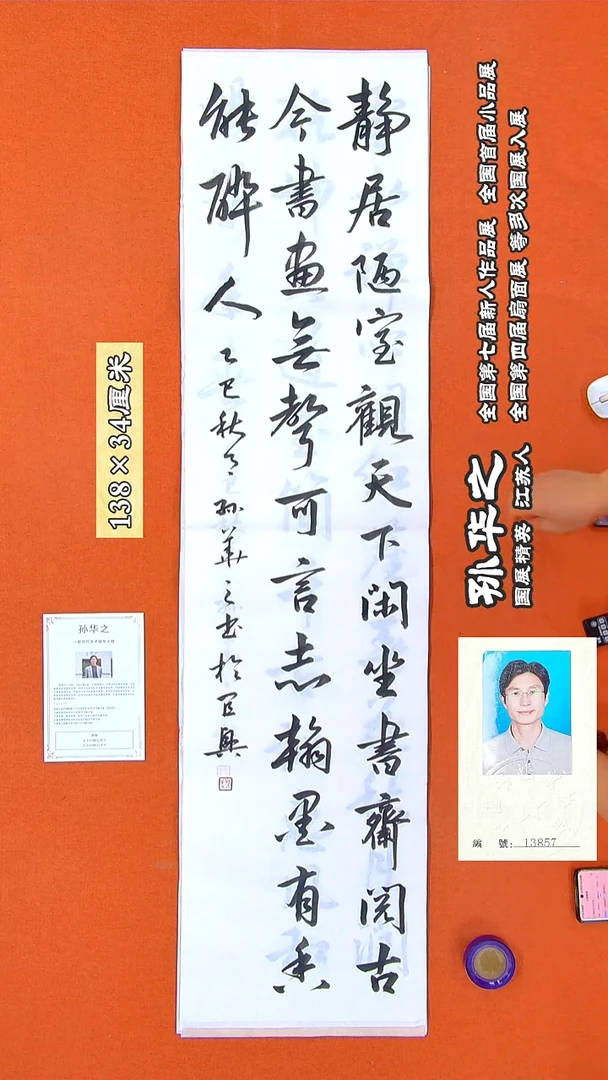 静居陋室觀天下閑坐書齋閱古
今書畫無聲可言志翰墨有香
能醉人
乙巳秋月孫華之書於宜興
全国第七届新人作品展 全国首届小品展
全国第四届扇面展 等多次国展入展
孙华之
国展精英 江苏人
138×34厘米
孙华之
編 號:13857